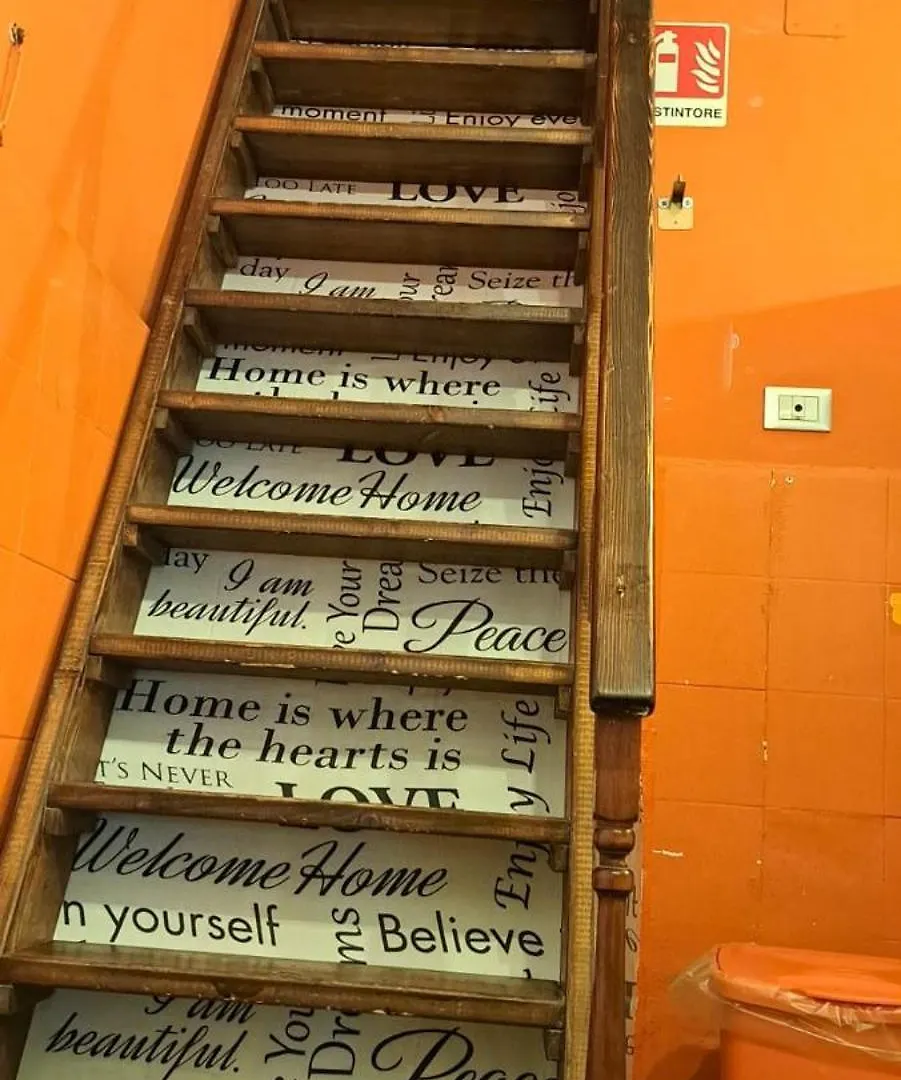 STINTORE
moment Enjoy eve
OO LATE LOVE
day I am Seize th
moment Enjoy
Home is where
Life
OO LATE LOVE
Welcome Home
Enjo
day I am Seize the
beautiful. e Your Drea Peace
Home is where
the hearts is
T'S NEVER LOVE
y Life
Welcome Home
Enj
n yourself ms Believe
I am
beautiful. You Dr Peace